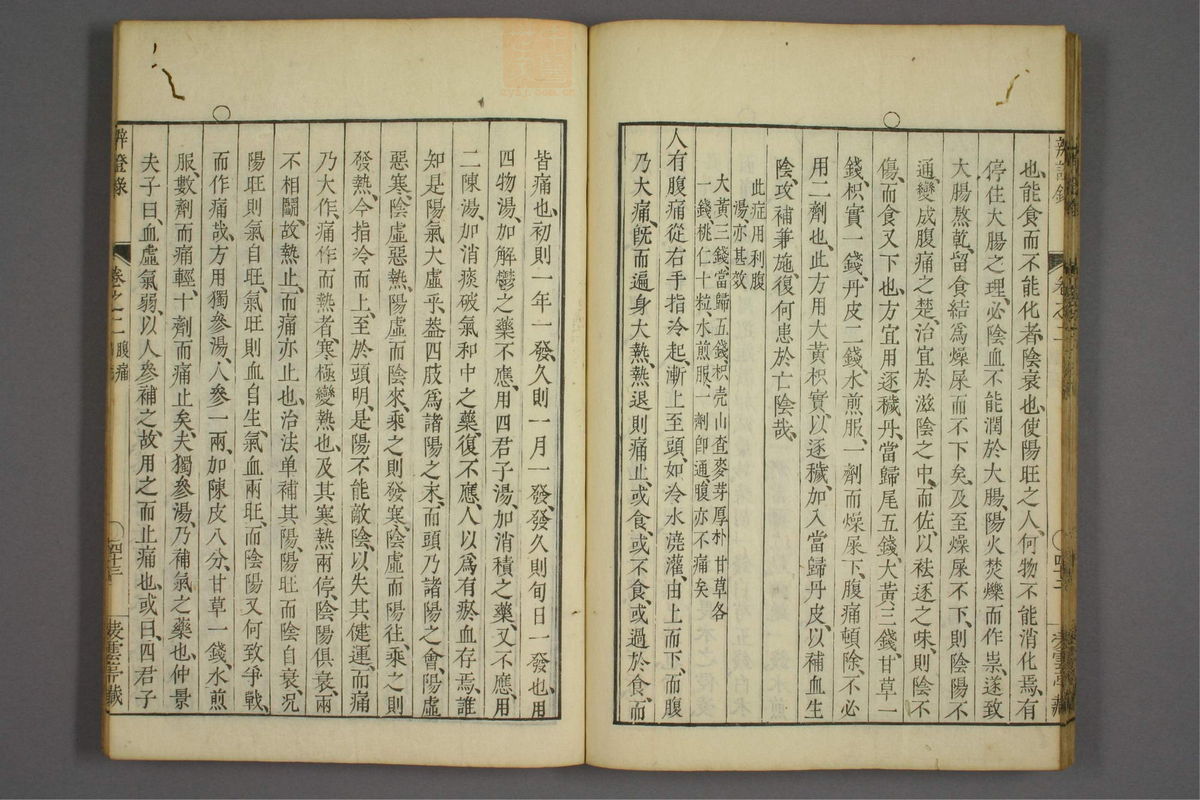 也能食而不能化者、陰衰也、使陽旺之人、何物不能消化焉、有
停住大腸之理、必陰血不能潤於大腸、陽火焚爍而作祟、遂致
大腸熬乾、留食結爲燥屎而不下矣、及至燥屎不下、則陰陽不
通、變成腹痛之楚、治宜於滋陰之中、而佐以袪逐之味、則陰不
傷、而食又下也、方宜用逐穢丹、當歸尾五錢、大黃三錢、甘草一
錢、枳實一錢、丹皮二錢、水煎服、一劑而燥屎下、腹痛頓除、不必
用二劑也、此方用大黃枳實、以逐穢、加入當歸丹皮、以補血生
陰、攻補兼施、復何患於亡陰哉、
此症用利腹
湯、亦甚效
大黃三錢當歸五錢、枳壳山查麥芽厚朴甘草各
一錢、桃仁十粒、水煎服、一劑卽通、腹亦不痛矣
人有腹痛從右手指冷起、漸上至頭、如冷水澆灌、由上而下、而腹
乃大痛、旣而遍身大熱、熱退則痛止、或食、或不食、或過於食、而
皆痛也、初則一年一發、久則一月一發、發久則旬日一發也、用
四物湯、加解鬱之藥不應、用四君子湯、加消積之藥、又不應、用
二陳湯、加消痰破氣和中之藥、復不應、人以爲有瘀血存焉、誰
知是陽氣大虛乎、葢四肢爲諸陽之末、而頭乃諸陽之會、陽虛
惡寒、陰虛惡熱、陽虛而陰來、乘之則發寒、陰虛而陽往、乘之則
發熱、今指冷而上、至於頭明、是陽不能敵陰、以失其健運、而痛
乃大作、痛作而熱者、寒極變熱也、及其寒熱兩停、陰陽俱衰、兩
不相鬬、故熱止、而痛亦止也、治法单補其陽、陽旺而陰自衰、况
陽旺則氣自旺、氣旺則血自生、氣血兩旺、而陰陽又何致爭戰、
而作痛哉、方用獨參湯、人參一兩、加陳皮八分、甘草一錢、水煎
服、數劑而痛輕、十劑而痛止矣、夫獨參湯、乃補氣之藥也、仲景
夫子曰、血虛氣弱、以人參補之、故用之而止痛也、或曰、四君子
辨證錄
卷之二 腹痛
四十三